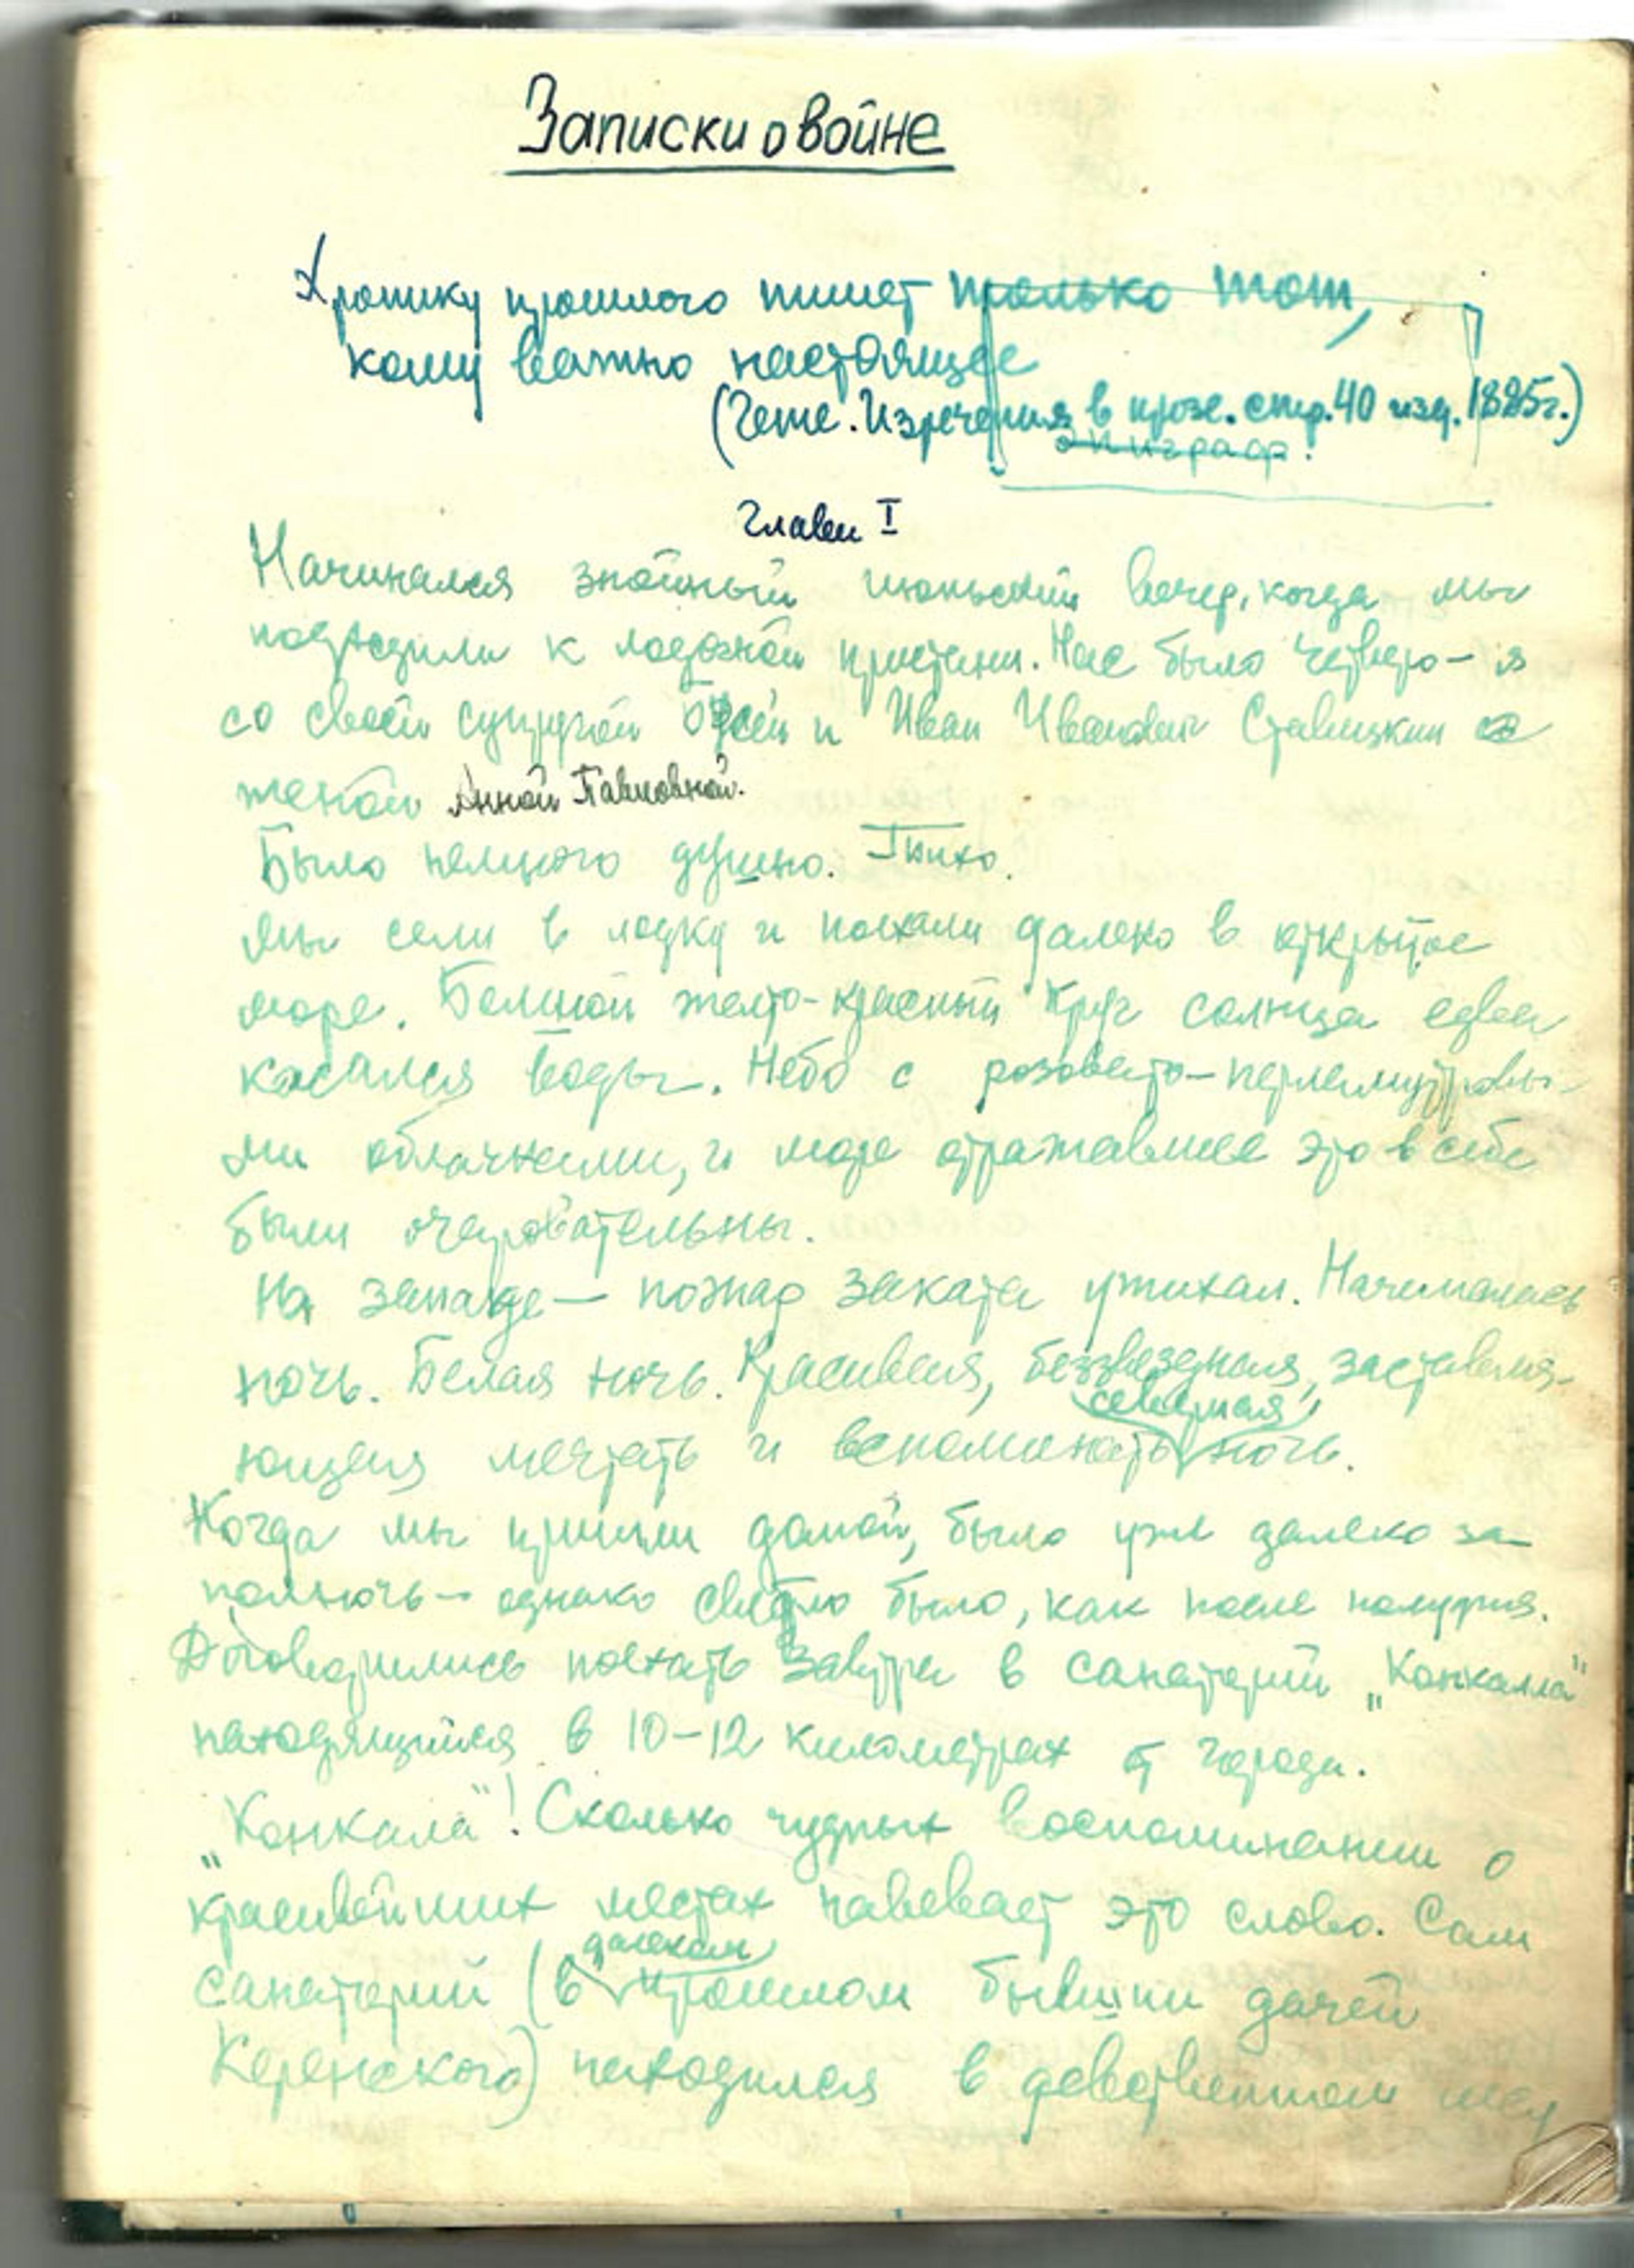 Записки о войне
Хронику прошлого пишет только тот,
кому важно настоящее
(Гете. Изречения в прозе. стр. 40 изд. 1885г.)
эпиграф.
Глава I
Начинался знойный июньский вечер, когда мы
подходили к лодочной пристани. Нас было четверо — я
со своей супругой и Иван Иванович Ставицкий с
женой Анной Павловной.
Было немного душно. Тихо.
Мы сели в лодку и поехали далеко в открытое
море. Большой желто-красный круг солнца едва
касался воды. Небо с розовато-перламутровы-
ми облачками, и море отражавшее это в себе
были очаровательны.
На западе — пожар заката утихал. Начиналась
ночь. Белая ночь. Красивая, беззвездная, заставля-
северная
ющая мечтать и вспоминать ночь.
Когда мы пришли домой, было уже далеко за
полночь — однако светло было, как после полудня.
Договорились поехать завтра в санаторий „Конкалла"
находящийся в 10-12 километрах от города.
„Конкала"! Сколько чудных воспоминании о
красивейших местах навевает это слово. Сам
далеком
санаторий (в прошлом бывши дачей
Керенского) находился в девственном лесу